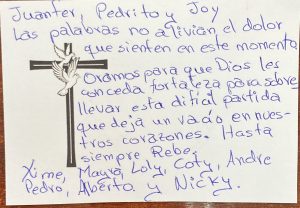 Juanfer, Pedrito y Joy
Las palabras no alivian el dolor
que sienten en este momento
Oramos para que Dios les
conceda fortaleza para sobre
llevar esta dificil partida
que deja un vacío en nues-
tros corazones. Hasta
siempre Rebe.
Xime, Mayra, Loly, Coty, Andre
Pedro, Alberto y Nicky.